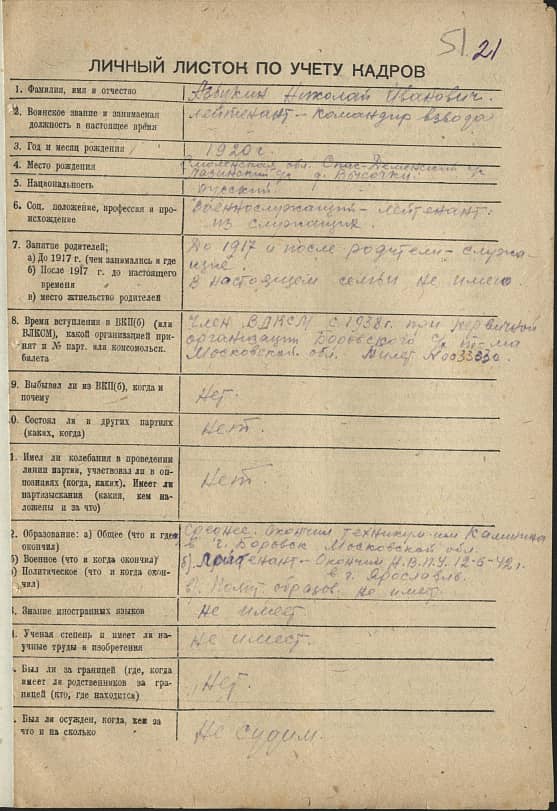 51 21
ЛИЧНЫЙ ЛИСТОК ПО УЧЕТУ КАДРОВ
1. Фамилия, имя и отчество
Николай Иванович.
2. Воинское звание и занимаемая
должность в настоящее время
Лейтенант - Командир взвода
3. Год и месяц рождения
1920 г.
4. Место рождения
Смоленская обл. Спас-Деменский р-н
д. Высочки.
5. Национальность
русский
6. Соц. положение, профессия и про-
исхождение
Военнослужащий - лейтенант.
из служащих.
7. Занятие родителей;
а) До 1917 г. (чем занимались и где
б) После 1917 г. до настоящего
времени
в) место жительство родителей
До 1917 и после родители - служа-
щие.
В настоящем семьи не имею.
8. Время вступления в ВКП(б) (или
ВЛКСМ), какой организацией при-
нят и № парт. или комсомольск.
билета
Член ВЛКСМ с 1938 г. при первичной
организации Боровского с/х т-ма
Московской обл. №0033030.
9. Выбывал ли из ВКП(б), когда и
почему
Нет.
0. Состоял ли в других партиях
(каких, когда)
Нет.
1. Имел ли колебания в проведении
линии партия, участвовал ли в оп-
позициях (когда, каких). Имеет ли
партвзыскания (какия, кем на-
ложены и за что)
Нет.
2. Образование: а) Общее (что и где
окончил)
б) Военное (что и когда окончил)
в) Политическое (что и когда окон-
чил)
Среднее. Окончил техникум им Калинина
в г. Боровск Московской обл.
б). Лейтенант - Окончил Н.В.П.У. 12-5-42 г.
в г. Ярославль.
в). Полит образов. не имеет.
3. Знание иностранных языков
Не имеет
4. Ученая степень и имеет ли на-
учные труды в изобретения
Не имеет.
Был ли за границей (где, когда
имеет ли родственников за гра-
ницей (кто, где находится)
Нет.
Был ли осужден, когда, кем за
что и на сколько
Не судим.